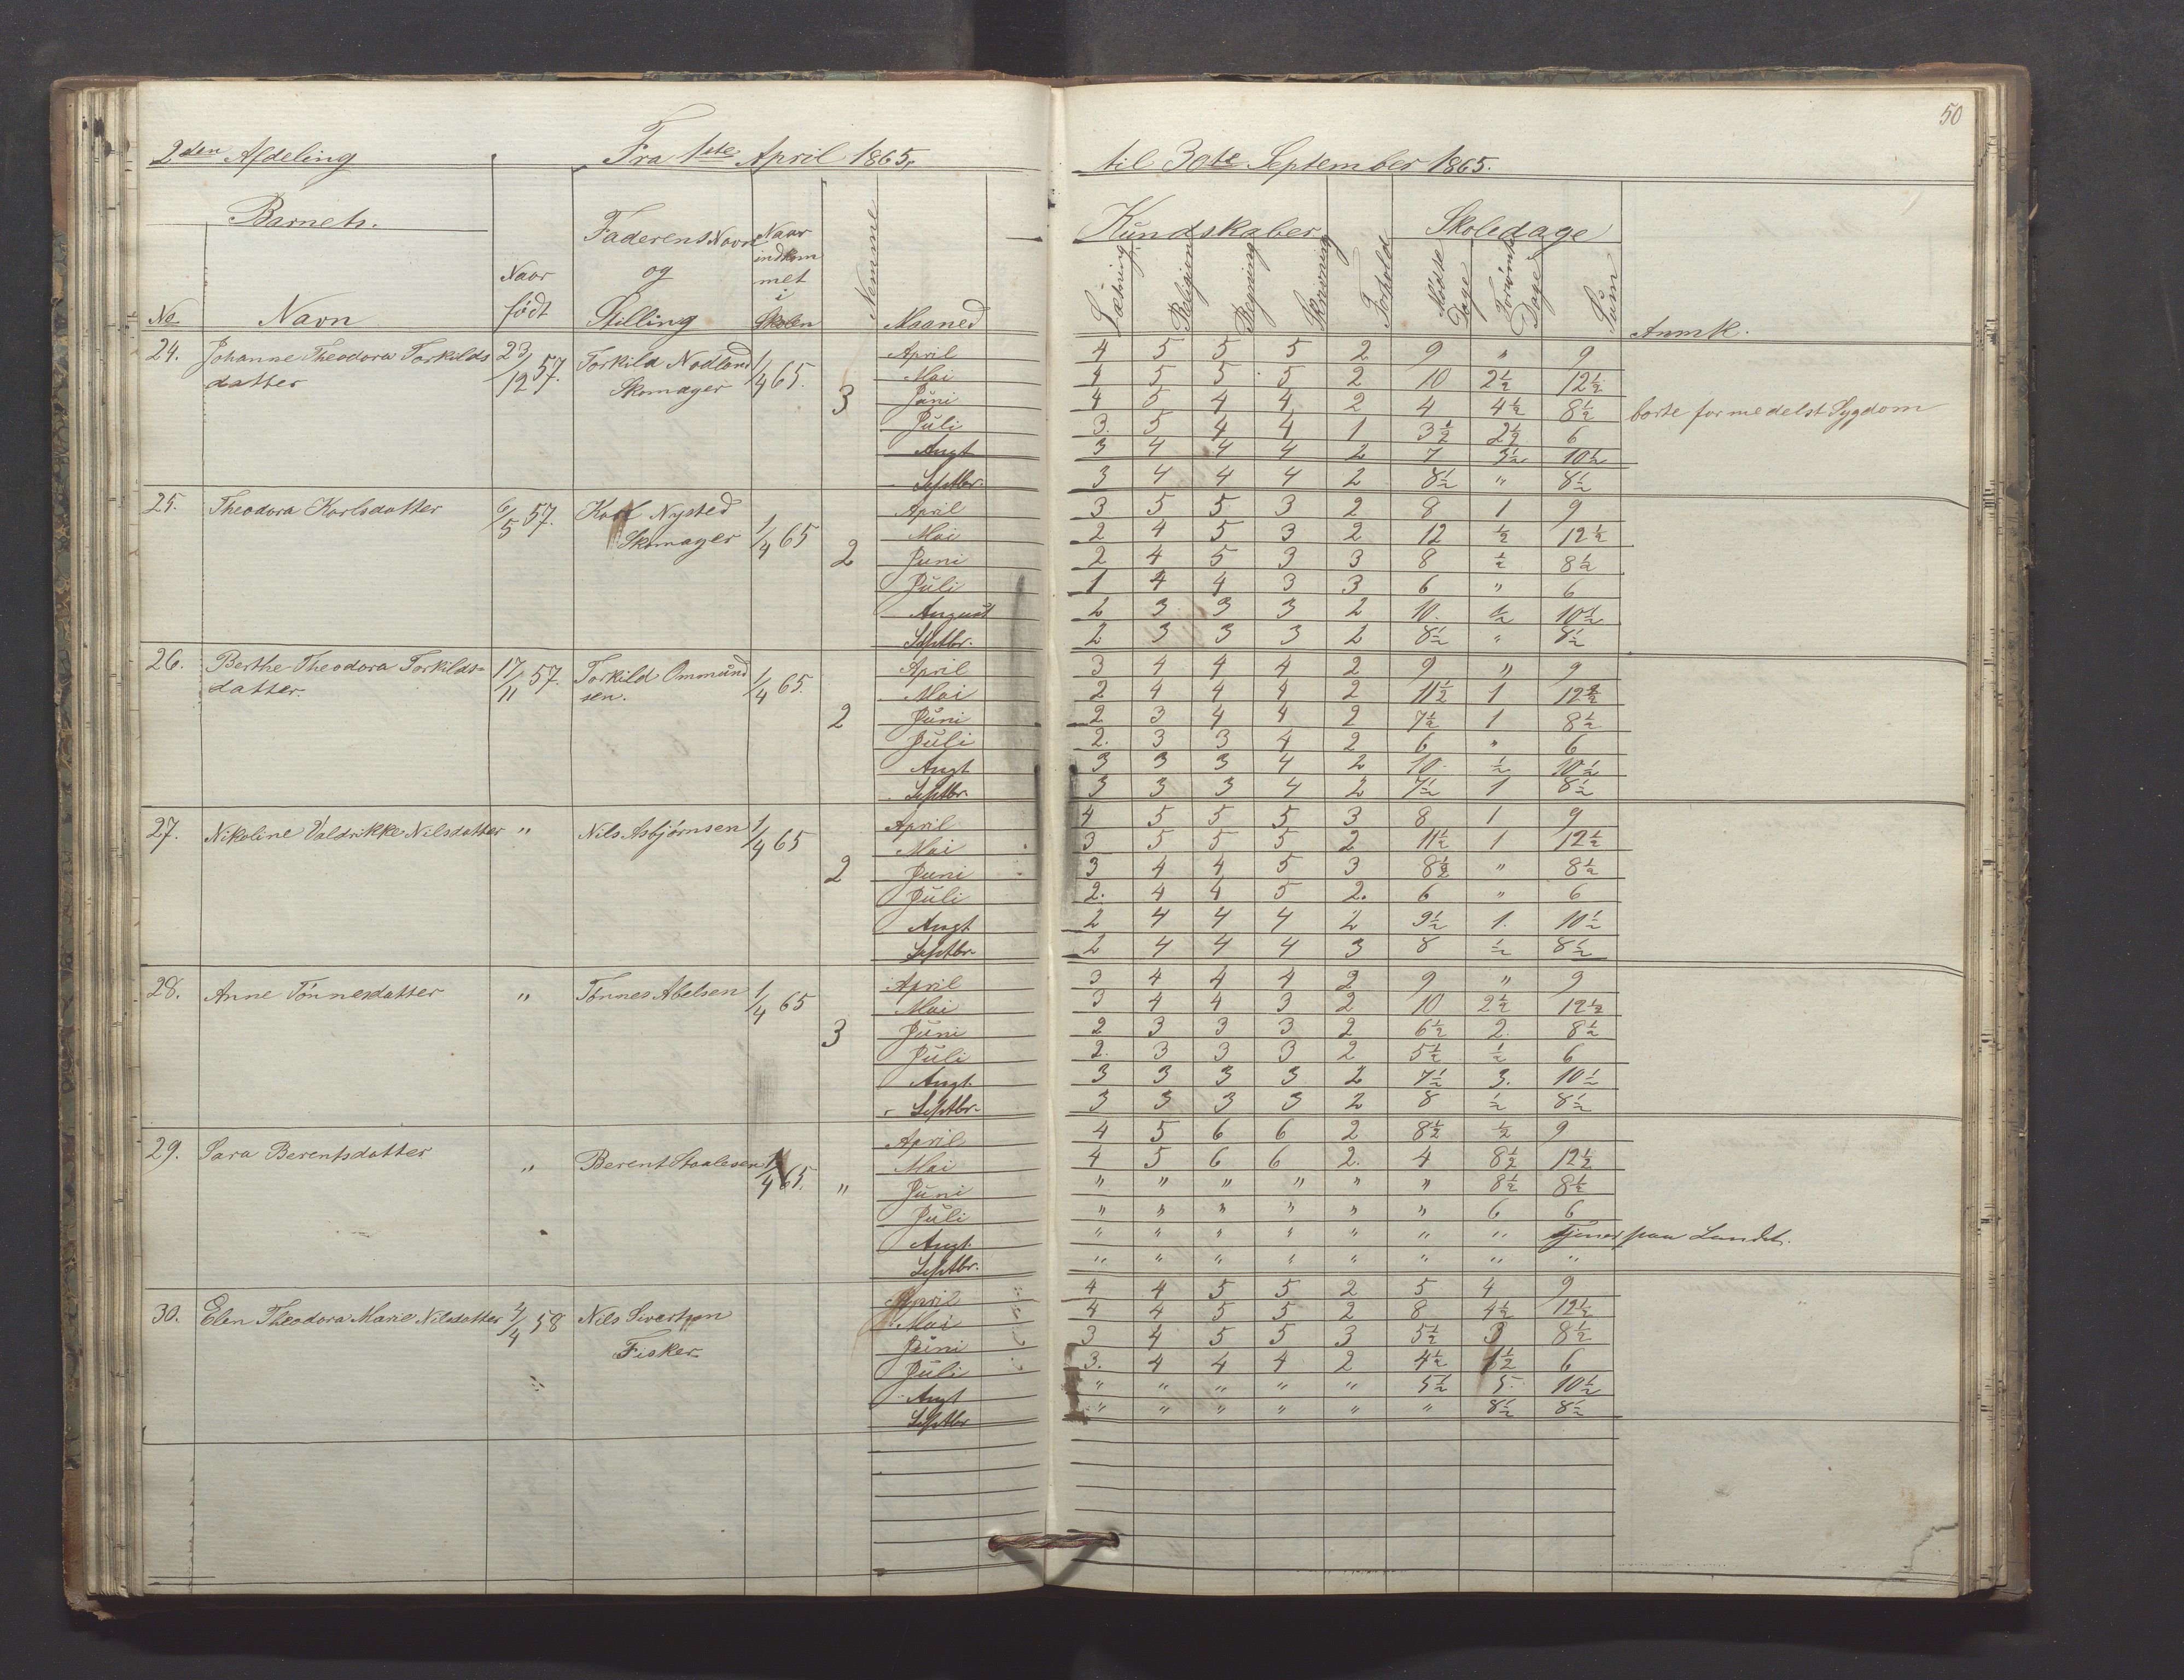 50
2den Afdeling Fra 1ste April 1865, til 30te September 1865.
Barnets. Kundskaber Skoledage
No Navn Naar født Faderens Navn og Stilling Naar indkommet i Skolen Nemme Maaned Læsning Religion Regning Skrivning Forhold Mødte Dage Forsømte Dage Sum Anmk.
24. Johanne Theodora Torkilds 23/12 57. Torkild Nodland 1/4 65. 3 April 4 5 5 5 2 9 " 9
datter Skomager Mai 4 5 5 5 2 10 2½ 12½
Juni 4 5 4 4 2 4 4½ 8½ borte formedelst Sygdom
Juli 3. 5 4 4 1 3½ 2½ 6
Augt 3 4 4 4 2 7 3½ 10½
Septbr. 3 4 4 4 2 8½ " 8½
25. Theodora Karlsdatter 6/5 57. Karl Nysted 1/4 65 2 April 3 5 5 3 2 8 1 9
Skomager Mai 2 4 5 3 2 12 ½ 12½
Juni 2 4 5 3 3 8 ½ 8½
Juli 1 4 4 3 3 6 " 6
August 2 3 3 3 2 10. ½ 10½
Septbr. 2 3 3 3 2 8½ " 8½
26. Berthe Theodora Torkilds= 17/11 57. Torkild Ommund 1/4 65. 2 April 3 4 4 4 2 9 " 9
datter. sen. Mai 2 4 4 4 2 11½ 1 12½
Juni 2 3 4 4 2 7½ 1 8½
Juli 2. 3 3 4 2 6 " 6
Augt 3 3 3 4 2 10. ½ 10½
Septbr. 3 3 3 4 2 7½ 1 8½
27. Nikoline Valdrikke Nilsdatter " Nils Asbjørnsen 1/4 65 2 April 4 5 5 5 3 8 1 9
Mai 3 5 5 5 2 11½ 1 12½
Juni 3 4 4 5 3 8½ " 8½
Juli 2. 4 4 5 2. 6 " 6
Augt 2 4 4 4 2 9½ 1. 10½
Septbr. 2 4 4 4 3 8 ½ 8½
28. Anne Tönnesdatter " Tønnes Abelsen 1/4 65 3 April 3 4 4 4 2 9 " 9
Mai 3 4 4 3 2 10 2½ 12½
Juni 2 3 3 3 2 6½ 2. 8½
Juli 2. 3 3 3 2 5½ ½ 6
Augt. 3 3 3 3 2 7½ 3. 10½
Septbr. 3 3 3 3 2 8 ½ 8½
29. Sara Berentsdatter " Berent Staalesen 1/4 65. " April 4 5 6 6 2 8½ ½ 9
Mai 4 5 6 6 2. 4 8½ 12½
Juni " " " " " " 8½ 8½
Juli " " " " " " 6 6
Augt. " " " " " " " Tjener paa Landet.
Septbr. " " " " " " " "
30. Elen Theodora Marie Nilsdatter 4/4 58 Nils Sivertsen April 4 4 5 5 2 5 4 9
Fisker Mai 4 4 5 5 2 8 4½ 12½
Juni 3 4 5 5 3 5½ 3 8½
Juli 3. 4 4 4 2 4½ 1½ 6
Augt " " " " " 5½ 5. 10½
Septbr " " " " " " 8½ 8½